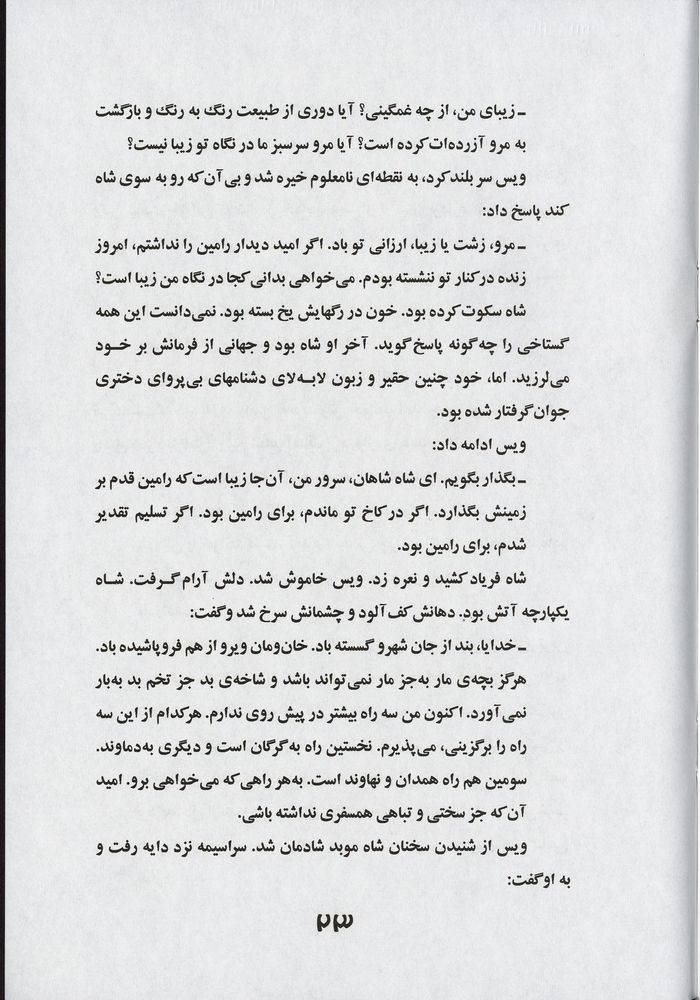 ـ زیبای من، از چه غمگینی؟ آیا دوری از طبیعت رنگ به رنگ و بازگشت
به مرو آزرده‌ات کرده است؟ آیا مرو سرسبز ما در نگاه تو زیبا نیست؟
ویس سر بلند کرد، به نقطه‌ای نامعلوم خیره شد و بی آن‌که رو به سوی شاه
کند پاسخ داد:
ـ مرو، زشت یا زیبا، ارزانی تو باد. اگر امید دیدار رامین را نداشتم، امروز
زنده در کنار تو ننشسته بودم. می‌خواهی بدانی کجا در نگاه من زیبا است؟
شاه سکوت کرده بود. خون در رگهایش یخ بسته بود. نمی‌دانست این همه
گستاخی را چه‌گونه پاسخ گوید. آخر او شاه بود و جهانی از فرمانش بر خود
می‌لرزید. اما، خود چنین حقیر و زبون لابه‌لای دشنامهای بی‌پروای دختری
جوان گرفتار شده بود.
ویس ادامه داد:
ـ بگذار بگویم. ای شاه شاهان، سرور من، آن‌جا زیبا است که رامین قدم بر
زمینش بگذارد. اگر در کاخ تو ماندم، برای رامین بود. اگر تسلیم تقدیر
شدم، برای رامین بود.
شاه فریاد کشید و نعره زد. ویس خاموش شد. دلش آرام گرفت. شاه
یکپارچه آتش بود. دهانش کف‌آلود و چشمانش سرخ شد و گفت:
ـ خدایا، بند از جان شهرو گسسته باد. خان‌ومان ویرو از هم فروپاشیده باد.
هرگز بچه‌ی مار به‌جز مار نمی‌تواند باشد و شاخه‌ی بد جز تخم بد به‌بار
نمی‌آورد. اکنون من سه راه بیشتر در پیش روی ندارم. هرکدام از این سه
راه را برگزینی، می‌پذیرم. نخستین راه به گرگان است و دیگری به‌دماوند.
سومین هم راه همدان و نهاوند است. به‌هر راهی که می‌خواهی برو. امید
آن‌که جز سختی و تباهی همسفری نداشته باشی.
ویس از شنیدن سخنان شاه موبد شادمان شد. سراسیمه نزد دایه رفت و
به او گفت:
۲۳